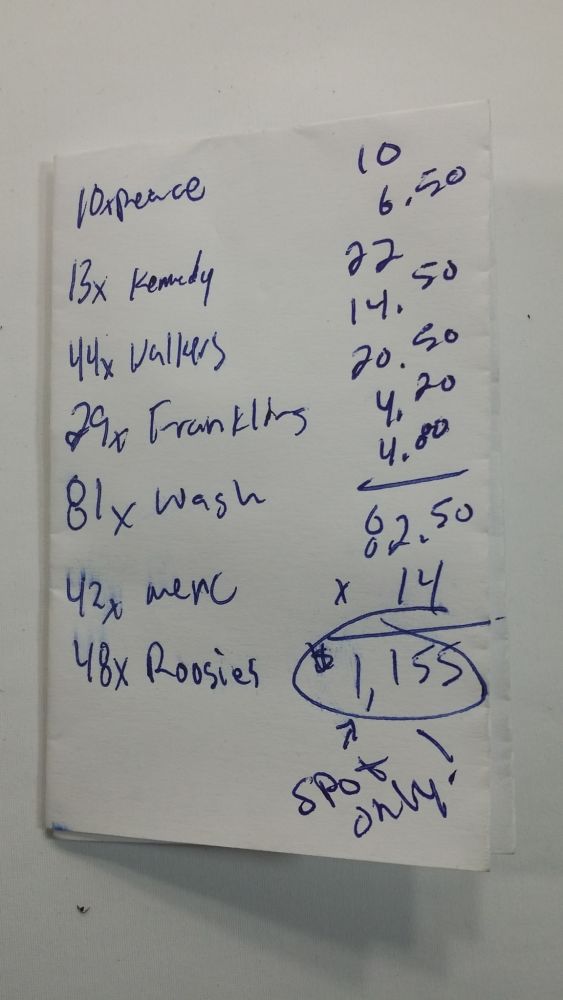 10xpeace 10
6.50
13x Kennedy 22
14.50
44x Walkers 20.50
29x Franklins 4.20
4.80
81x Wash
82.50
42x merc x 14
48x Roosies $1,155
spot
only!